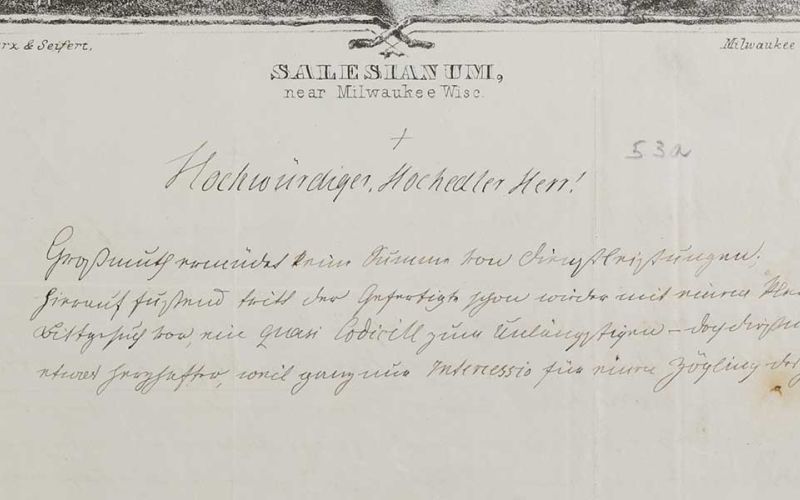 rx & Seifert.
Milwaukee
SALESIANUM,
near Milwaukee Wisc.
+
53a
Hochwürdiger, Hochedler Herr!
Großmuth ermüdet keine Summe von Dienstleistungen;
hierauf fußend tritt der Gefertigte schon wieder mit einem
Bittgesuch vor, ein quasi Codicill zum Unlängstigen – doch
etwas herzhafter, weil ganz nur Intercessio für einen Zögling des